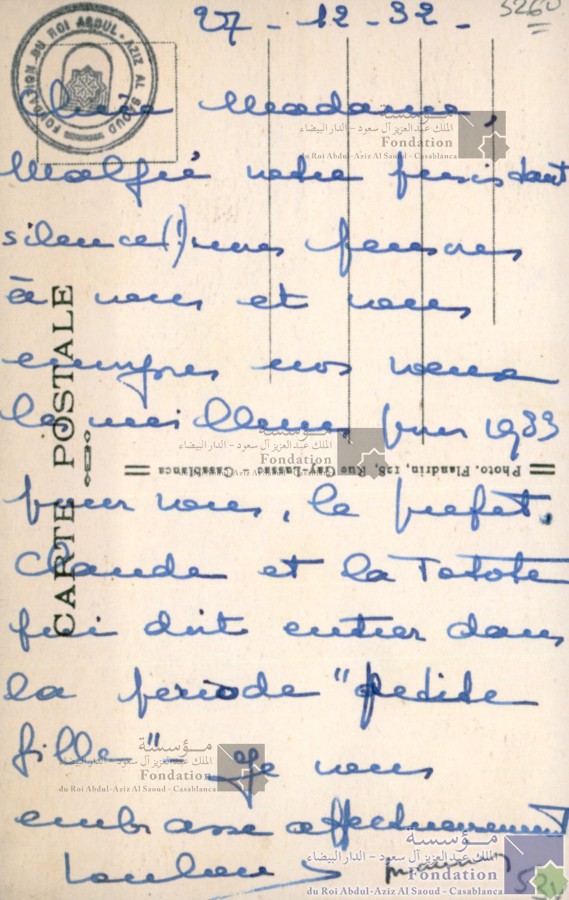 5260
27 - 12 - 32 -
FONDATION DU ROI ABDUL-AZIZ AL SAOUD
Chère Madame,
Malgré votre persistant
silence (!) nous pensons
à vous et vous
envoyons nos vœux
les meilleurs pour 1933
pour vous, le préfet,
Claude et la Totote
qui doit entrer dans
la période "petite
fille" - Je vous
embrasse affectueusement
CARTE POSTALE
Photo. Flandrin, 128, Rue Gay-Lussac - Casablanca
مؤسسة
الملك عبدالعزيز آل سعود - الدار البيضاء
Fondation
du Roi Abdul-Aziz Al Saoud - Casablanca
مؤسسة
الملك عبدالعزيز آل سعود - الدار البيضاء
Fondation
du Roi Abdul-Aziz Al Saoud - Casablanca
مؤسسة
الملك عبدالعزيز آل سعود - الدار البيضاء
Fondation
du Roi Abdul-Aziz Al Saoud - Casablanca
مؤسسة
الملك عبدالعزيز آل سعود - الدار البيضاء
Fondation
du Roi Abdul-Aziz Al Saoud - Casablanca